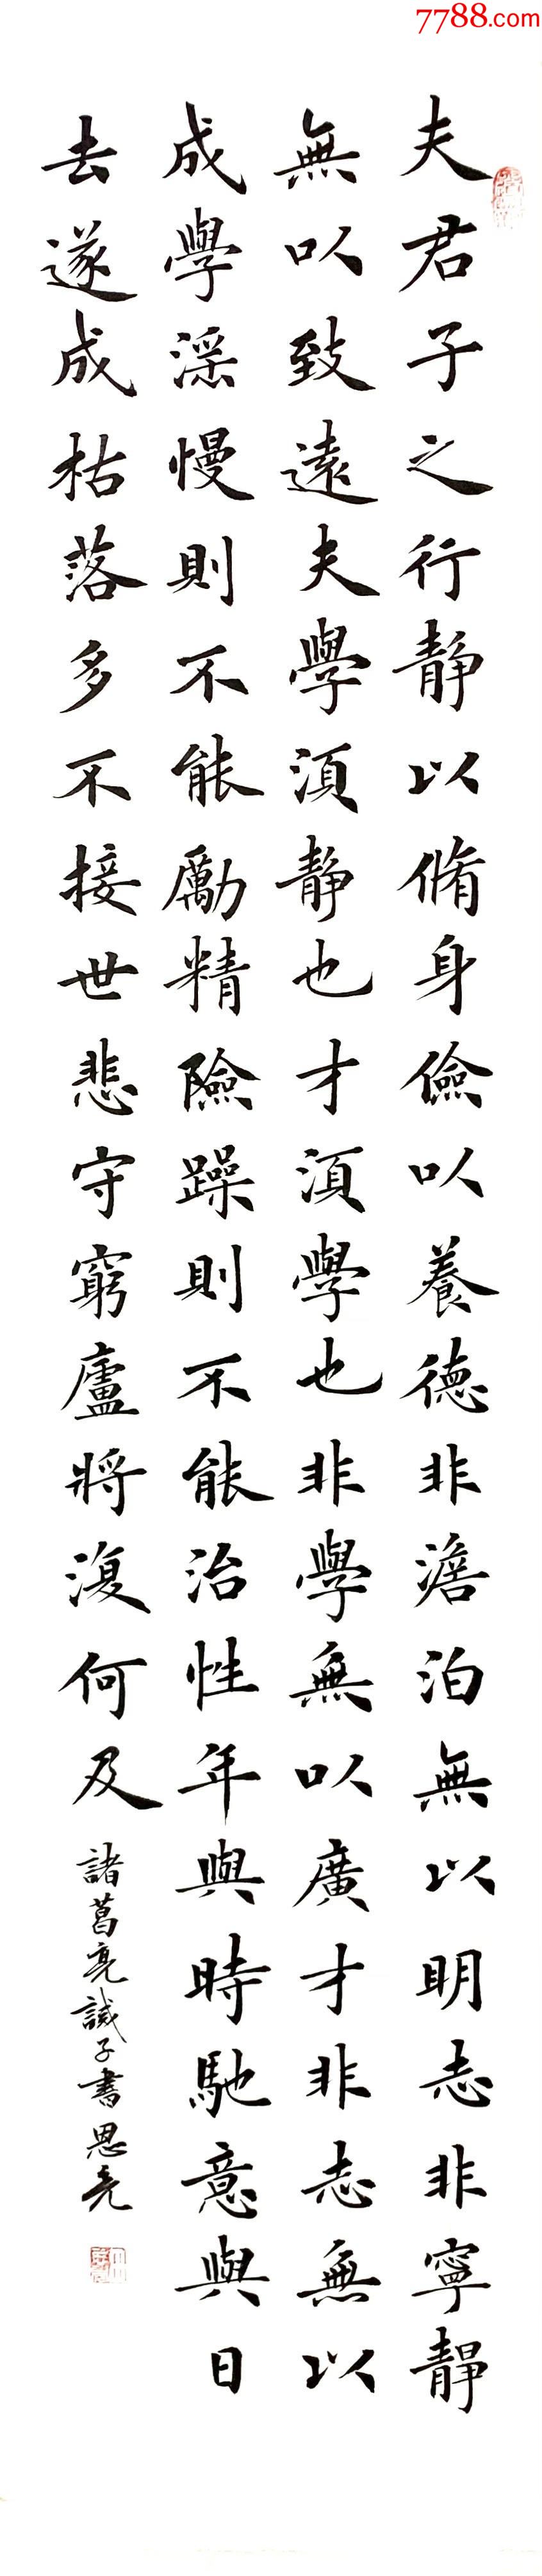 7788.com
夫君子之行靜以脩身儉以養德非澹泊無以明志非寧靜
無以致遠夫學須靜也才須學也非學無以廣才非志無以
成學滛慢則不能勵精險躁則不能治性年與時馳意與日
去遂成枯落多不接世悲守窮廬將復何及
諸葛亮誡子書思堯